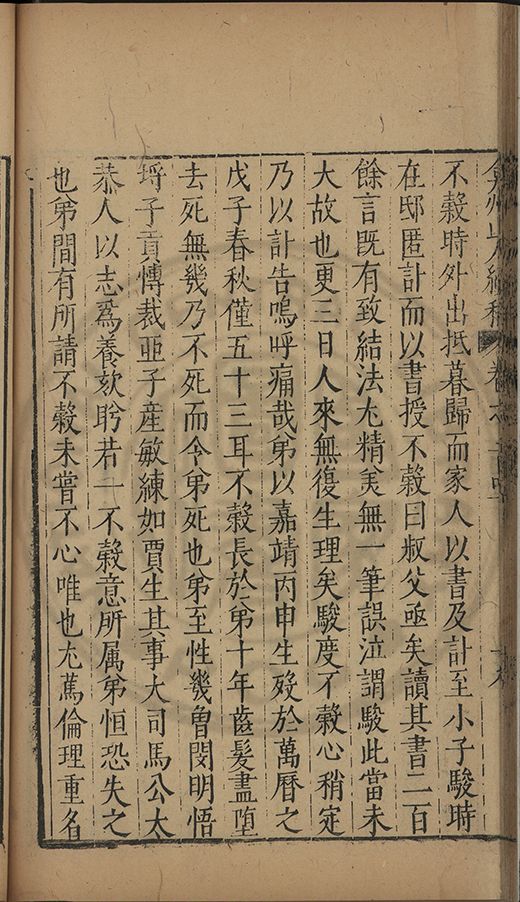 弇州山人續稿 卷
不穀時外出抵暮歸而家人以書及計至小子駿時
在邸匿計而以書授不穀曰叔父亟矣讀其書二百
餘言既有致結法尤精美無一筆誤泣謂駿此當未
大故也更三日人來無復生理矣駿度不穀心稍定
乃以計告嗚呼痛哉弟以嘉靖丙申生歿於萬曆之
戊子春秋僅五十三耳不穀長於弟十年齒髮盡墮
去死無幾乃不死而令弟死也弟至性幾魯閔明悟
埒子貢慱裁亞子產敏練如賈生其事大司馬公太
恭人以志爲養欬肸若一不穀意所属弟恒恐失之
也弟間有所請不穀未嘗不心唯也尤篤倫理重名